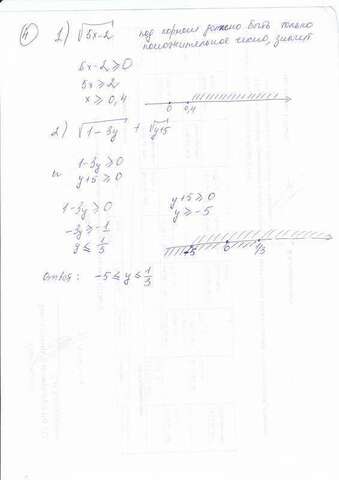 4) 1) √5x-2 под корнем должно быть только
положительное число, значит
5x-2 ⩾ 0
5x ⩾ 2
x ⩾ 0,4
0 0,4
2) √1-3y + √y+5
1-3y ⩾ 0
и y+5 ⩾ 0
1-3y ⩾ 0 y+5 ⩾ 0
-3y ⩾ -1 y ⩾ -5
y ⩽ 1/3
-5 0 1/3
ответ: -5 ⩽ y ⩽ 1/3